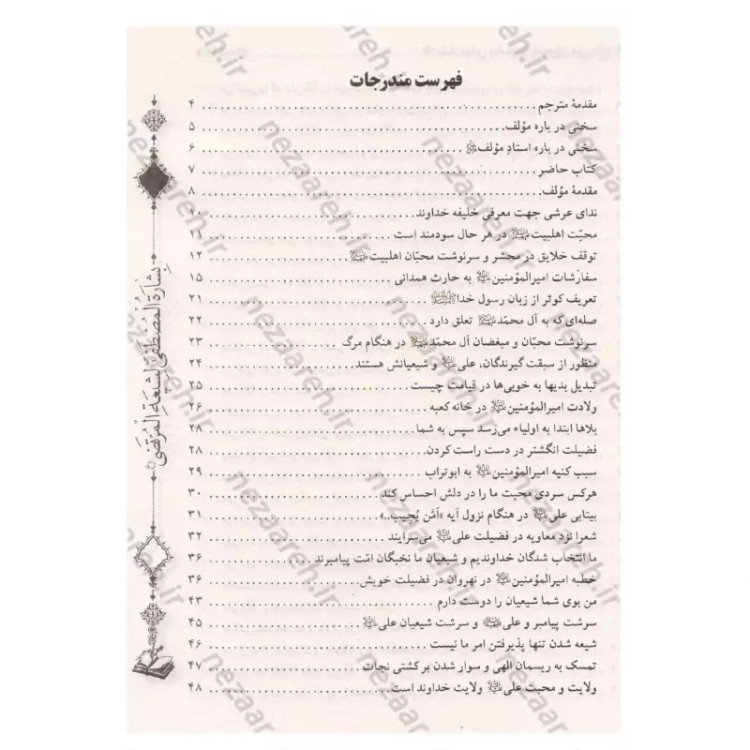 فهرست مندرجات
مقدمهٔ مترجم ........ ۴
سخنی در باره مؤلف ........ ۵
سخنی در باره استادِ مؤلف ........ ۶
کتاب حاضر ........ ۷
مقدمهٔ مؤلف ........ ۸
ندای عرشی جهت معرفی خلیفه خداوند ........
محبّت اهلبیت در هر حال سودمند است ........ ۱۱
توقف خلایق در محشر و سرنوشت محبّان اهلبیت ........ ۱۲
سفارشات امیرالمؤمنین به حارث همدانی ........ ۱۵
تعریف کوثر از زبان رسول خدا ........ ۲۱
صله‌ای که به آل محمّد تعلق دارد ........ ۲۲
سرنوشت محبّان و مبغضان آل محمّد در هنگام مرگ ........ ۲۳
منظور از سبقت گیرندگان، علی و شیعیانش هستند ........ ۲۴
تبدیل بدیها به خوبی‌ها در قیامت چیست ........ ۲۵
ولادت امیرالمؤمنین در خانه کعبه ........ ۲۶
بلاها ابتدا به اولیاء می‌رسد سپس به شما ........ ۲۸
فضیلت انگشتر در دست راست کردن ........ ۲۸
سبب کنیه امیرالمؤمنین به ابوتراب ........ ۲۹
هرکس سردی محبت ما را در دلش احساس کند ........ ۳۰
بیتابی علی در هنگام نزول آیه «اَمَّن یُجیب..» ........ ۳۱
شعرا نزد معاویه در فضیلت علی می‌سرایند ........ ۳۲
ما انتخاب شدگان خداوندیم و شیعیان ما نخبگان امّت پیامبرند ........ ۳۶
خطبه امیرالمؤمنین در نهروان در فضیلت خویش ........ ۳۶
من بوی شما شیعیان را دوست دارم ........ ۴۳
سرشت پیامبر و علی و سرشت شیعیان علی ........ ۴۵
شیعه شدن تنها پذیرفتن امر ما نیست ........ ۴۶
تمسک به ریسمان الهی و سوار شدن بر کشتی نجات ........ ۴۷
ولایت و محبت علی ولایت خداوند است ........ ۴۸
بِشارَةُ المُصطَفی لِشیعَةِ المُرتَضی
nezaareh.ir